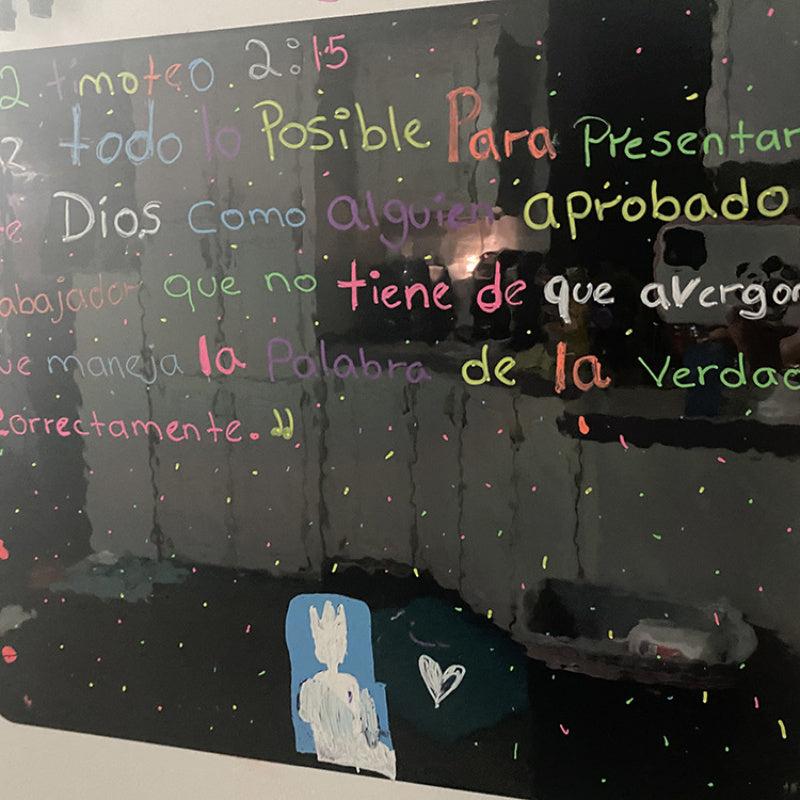 2 timoteo 2:15
z todo lo Posible Para Presentar
te Dios como alguien aprobado
abajador que no tiene de que avergon
ue maneja la Palabra de la Verdad
correctamente."